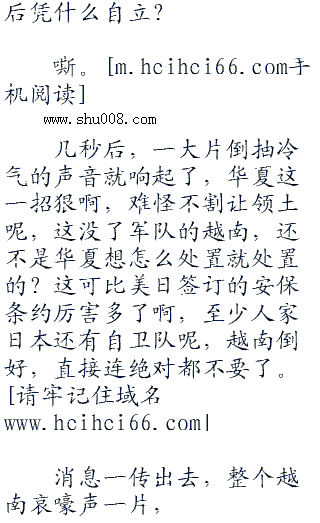 后凭什么自立？
嘶。[m.hcihci66.com手
机阅读]
www.shu008.com
几秒后，一大片倒抽冷
气的声音就响起了，华夏这
一招狠啊，难怪不割让领土
呢，这没了军队的越南，还
不是华夏想怎么处置就处置
的？这可比美日签订的安保
条约厉害多了啊，至少人家
日本还有自卫队呢，越南倒
好，直接连绝对都不要了。
[请牢记住域名
www.hcihci66.com|
消息一传出去，整个越
南哀嚎声一片，